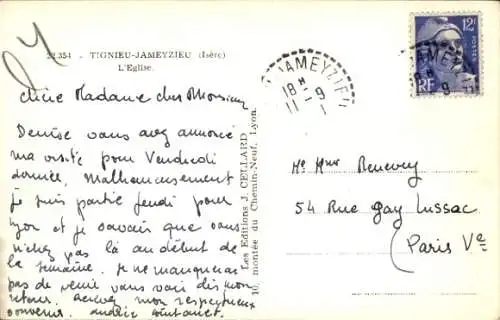 22.354 - TIGNIEU-JAMEYZIEU (Isère)
L'Eglise.
chère Madame cher Monsieur
Denise vous avez annoncé
ma visite pour Vendredi
dernier, Malheureusement
je suis partie jeudi pour
Lyon et je savais que vous
n'étiez pas là au début de
la semaine. je ne manquerai
pas de venir vous voir dès mon
retour. Recevez mon respectueux
souvenir.
Les Editions J. CELLARD
10, montée du Chemin-Neuf, Lyon.
JAMEYZIEU
18 H
11 - 9
1
12F
POSTES
RF
JAMEYZ
18 H
9
Mr Mme Renevey
54 Rue Gay Lussac
(Paris Ve)